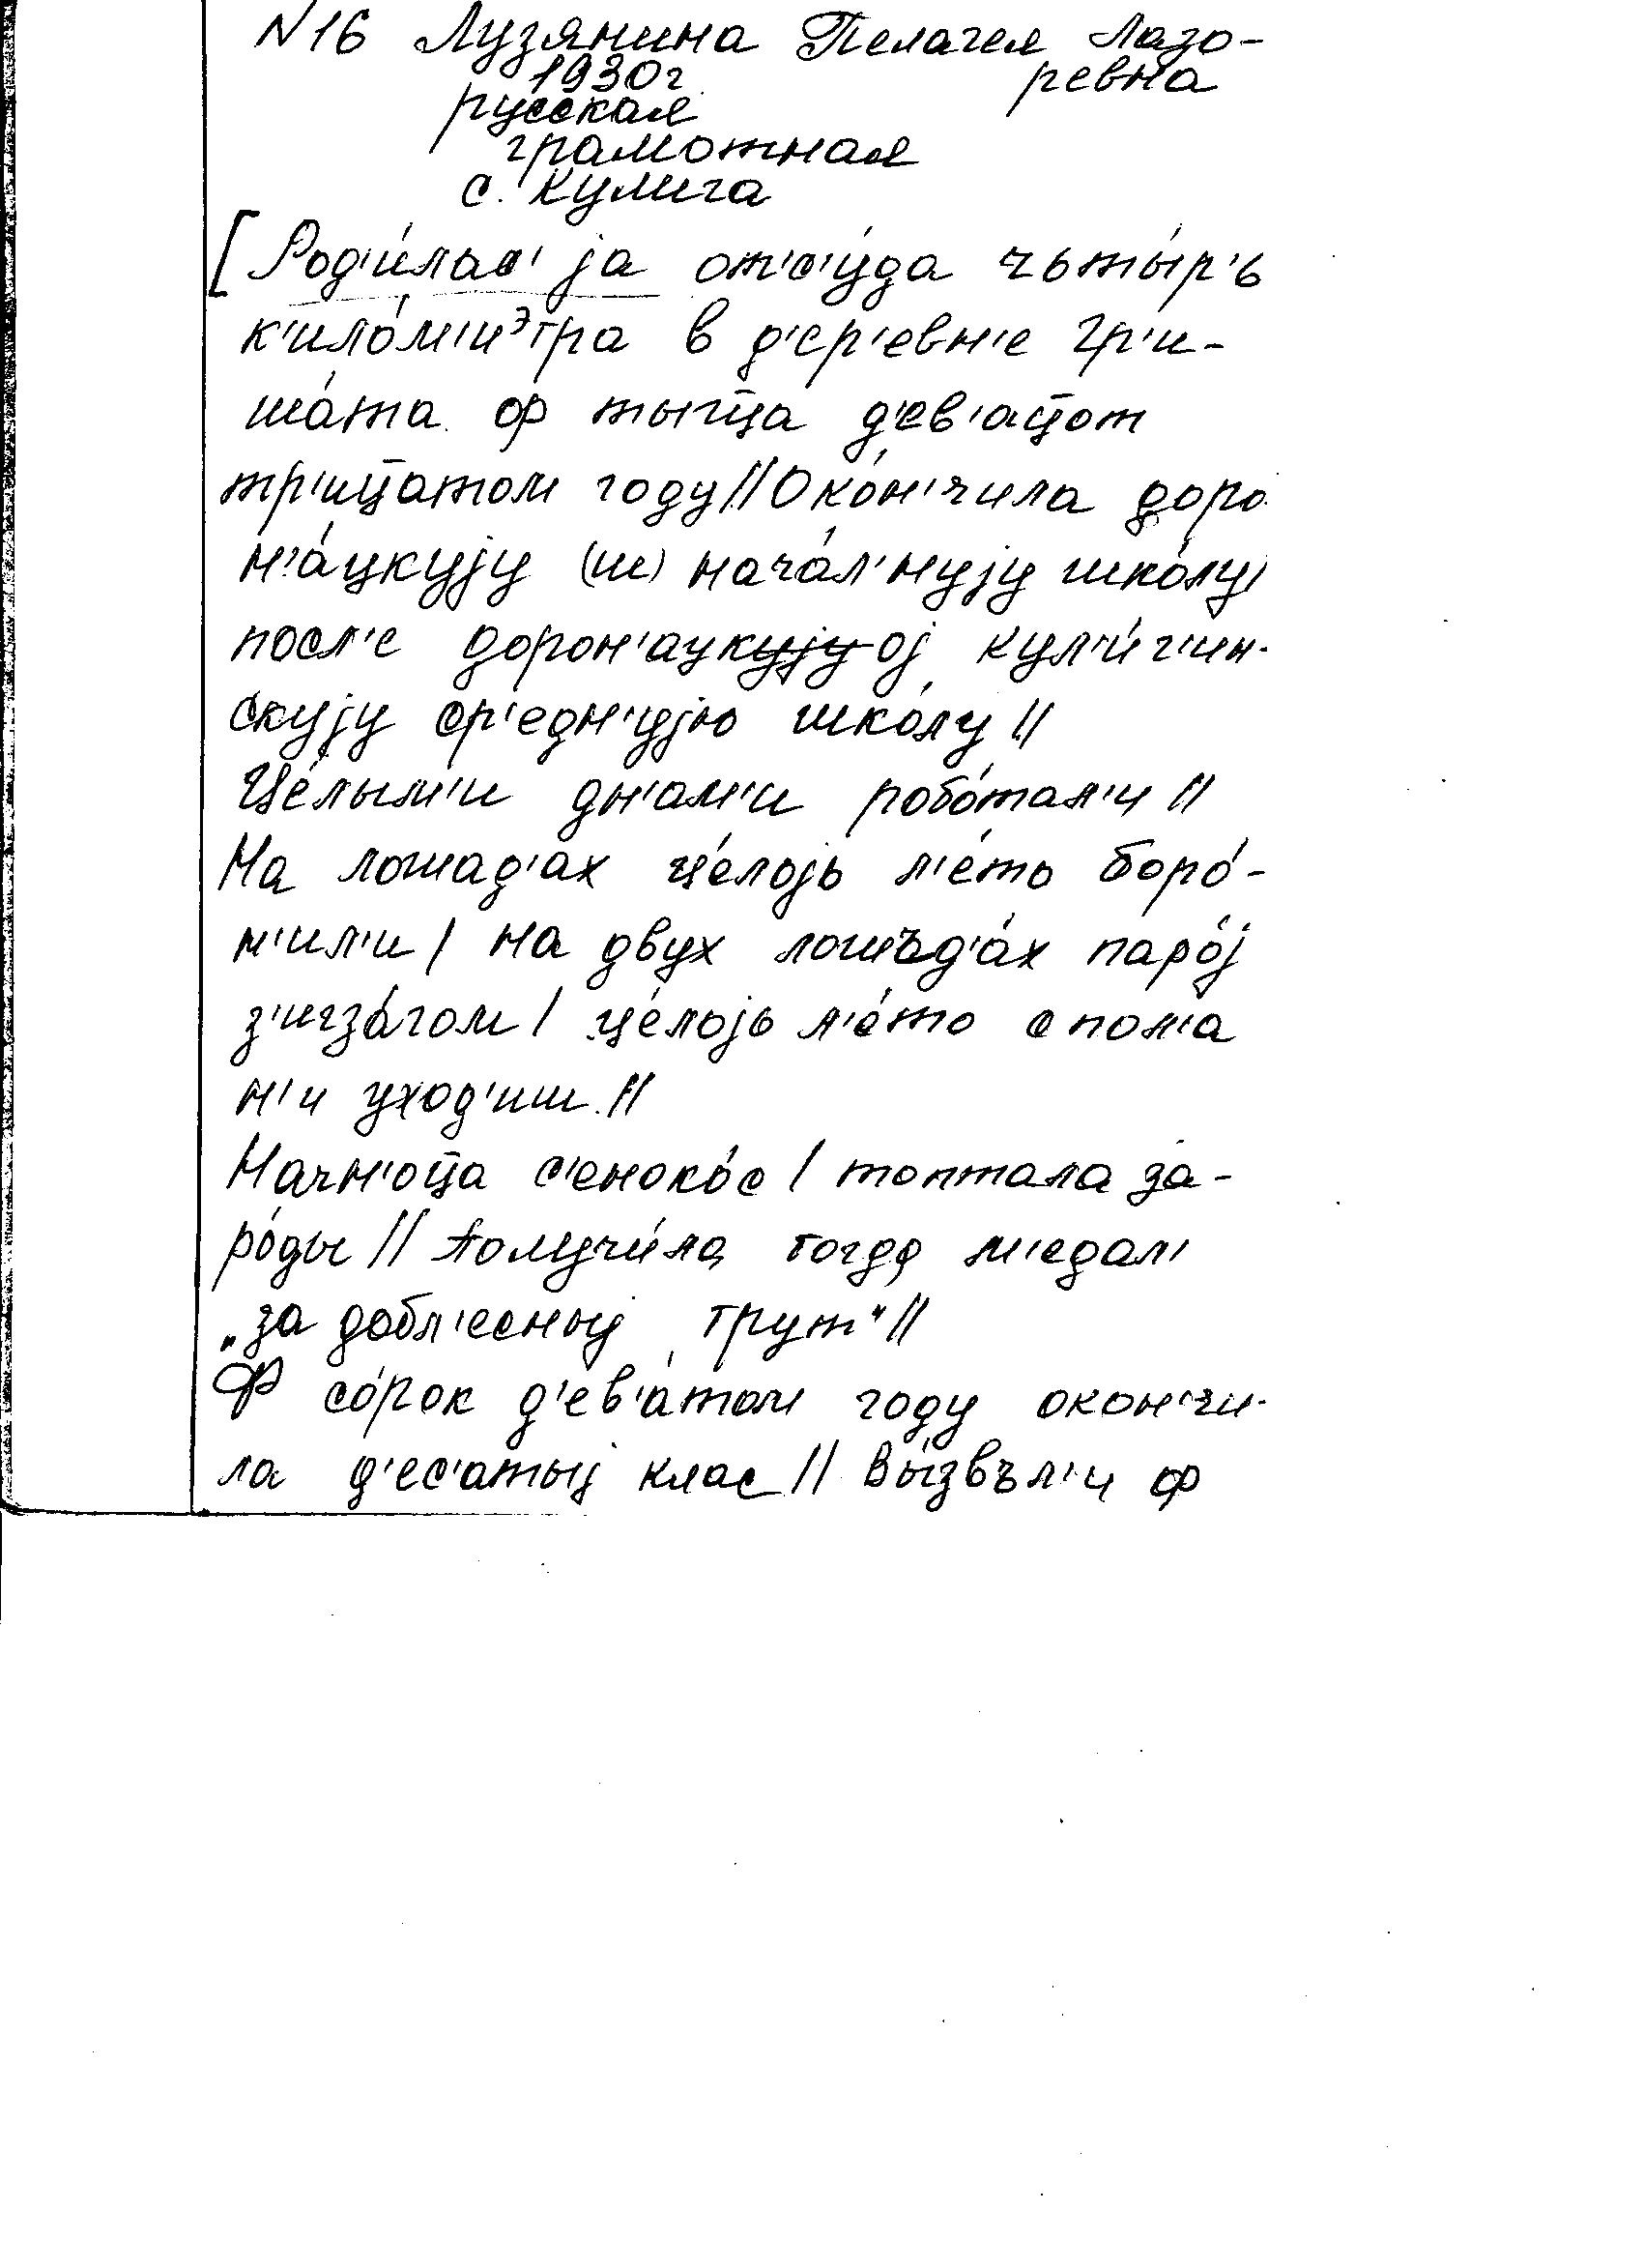 N16 Лузянина Пелагея Лазо-
1930г ревна
русская
грамотная
с. Кулига
[Род'и́лас' jа от'с'у́да чьты́р'ь
к'ило́м'иэтра в д'ер'евн'е Гр'и-
ша́та ф тыц̄а д'ев'ац̄от
тр'иц̄атом году // Око́н'чила доро
н'а́цкуjу (ш) нача́л'нуjу шко́лу/
посл'е дорон'ацкуjу оj кул'и́г'ин-
скуjу ср'едн'уjу шко́лу //
Це́лым'и дн'ам'и робо́тал'и //
На лошад'ах це́лоjь л'е́ть боро́-
н'ил'и / на двух лошъд'а́х паро́j
з'игза́гом / це́лоjь л'е́то с пол'а
н'и уход'иш //
Начн'оц̄а с'еноко́с / топтала за-
ро́ды // Получи́ла тогда м'едал'
„за добл'есныj трут“ //
Ф со́рок д'ев'а́том году окон'чи-
ла д'ес'атыj клас // Вы́звъл'и ф